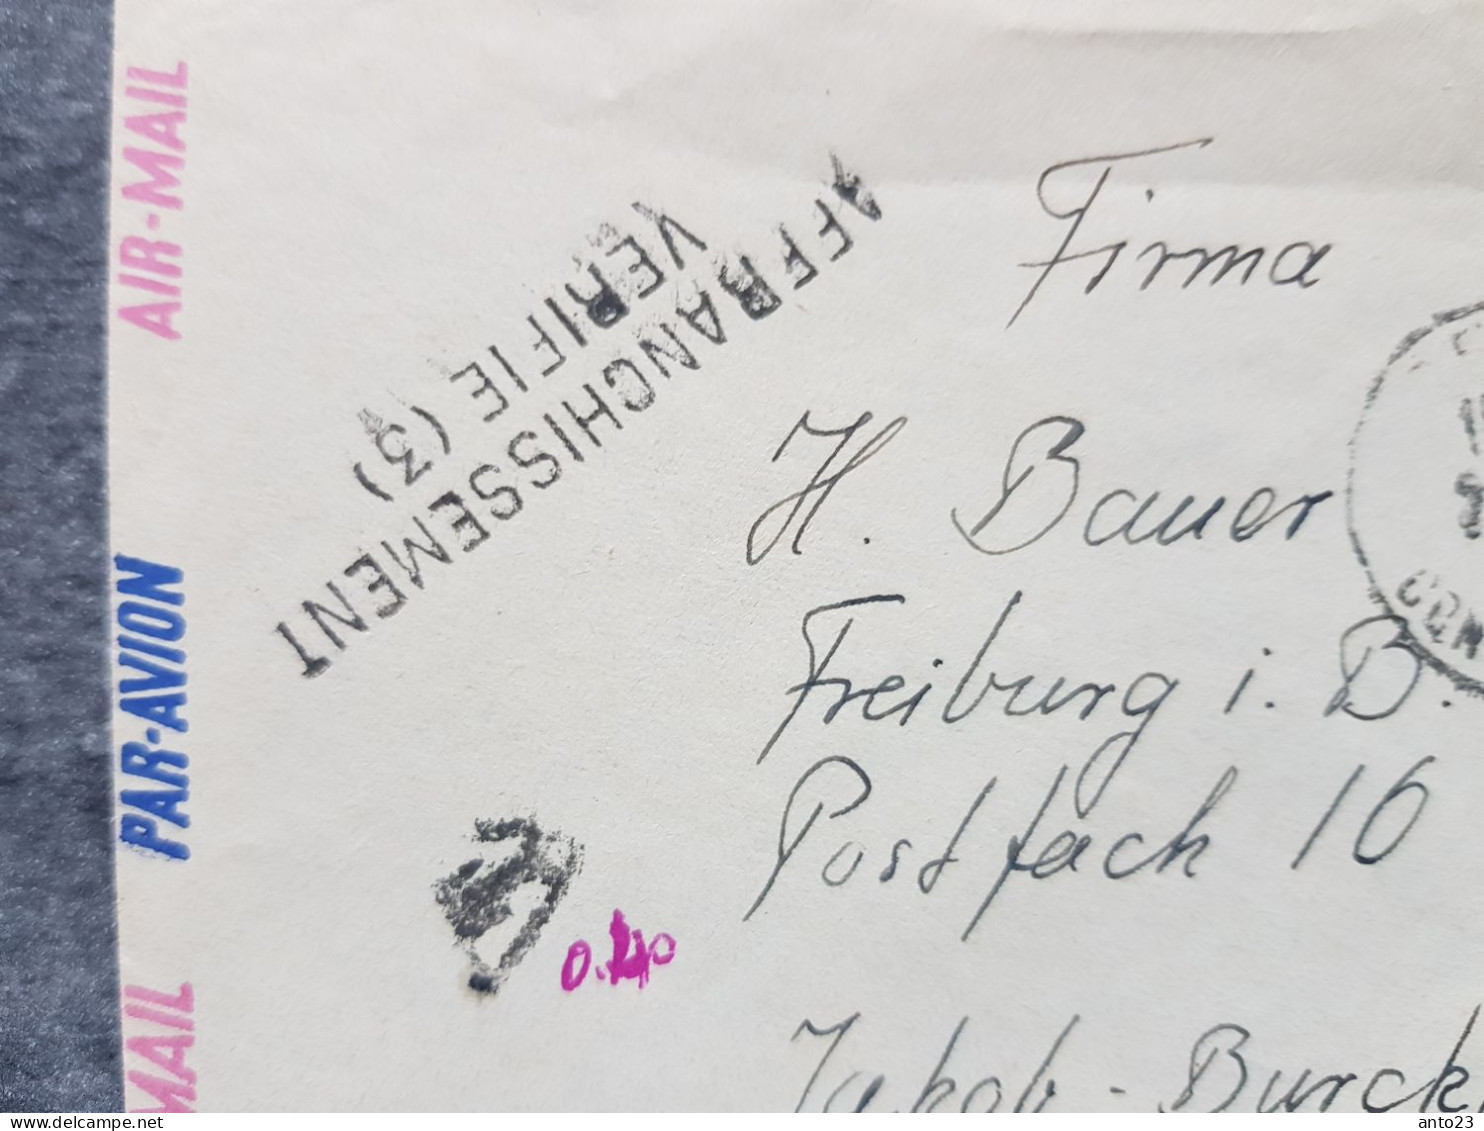 AIR-MAIL
PAR-AVION
MAIL
AFFRANCHISSEMENT
VERIFIE (3)
Firma
H. Bauer
Freiburg i. B.
Postfach 16
Jakob-Burck
0.40
CON
anto23